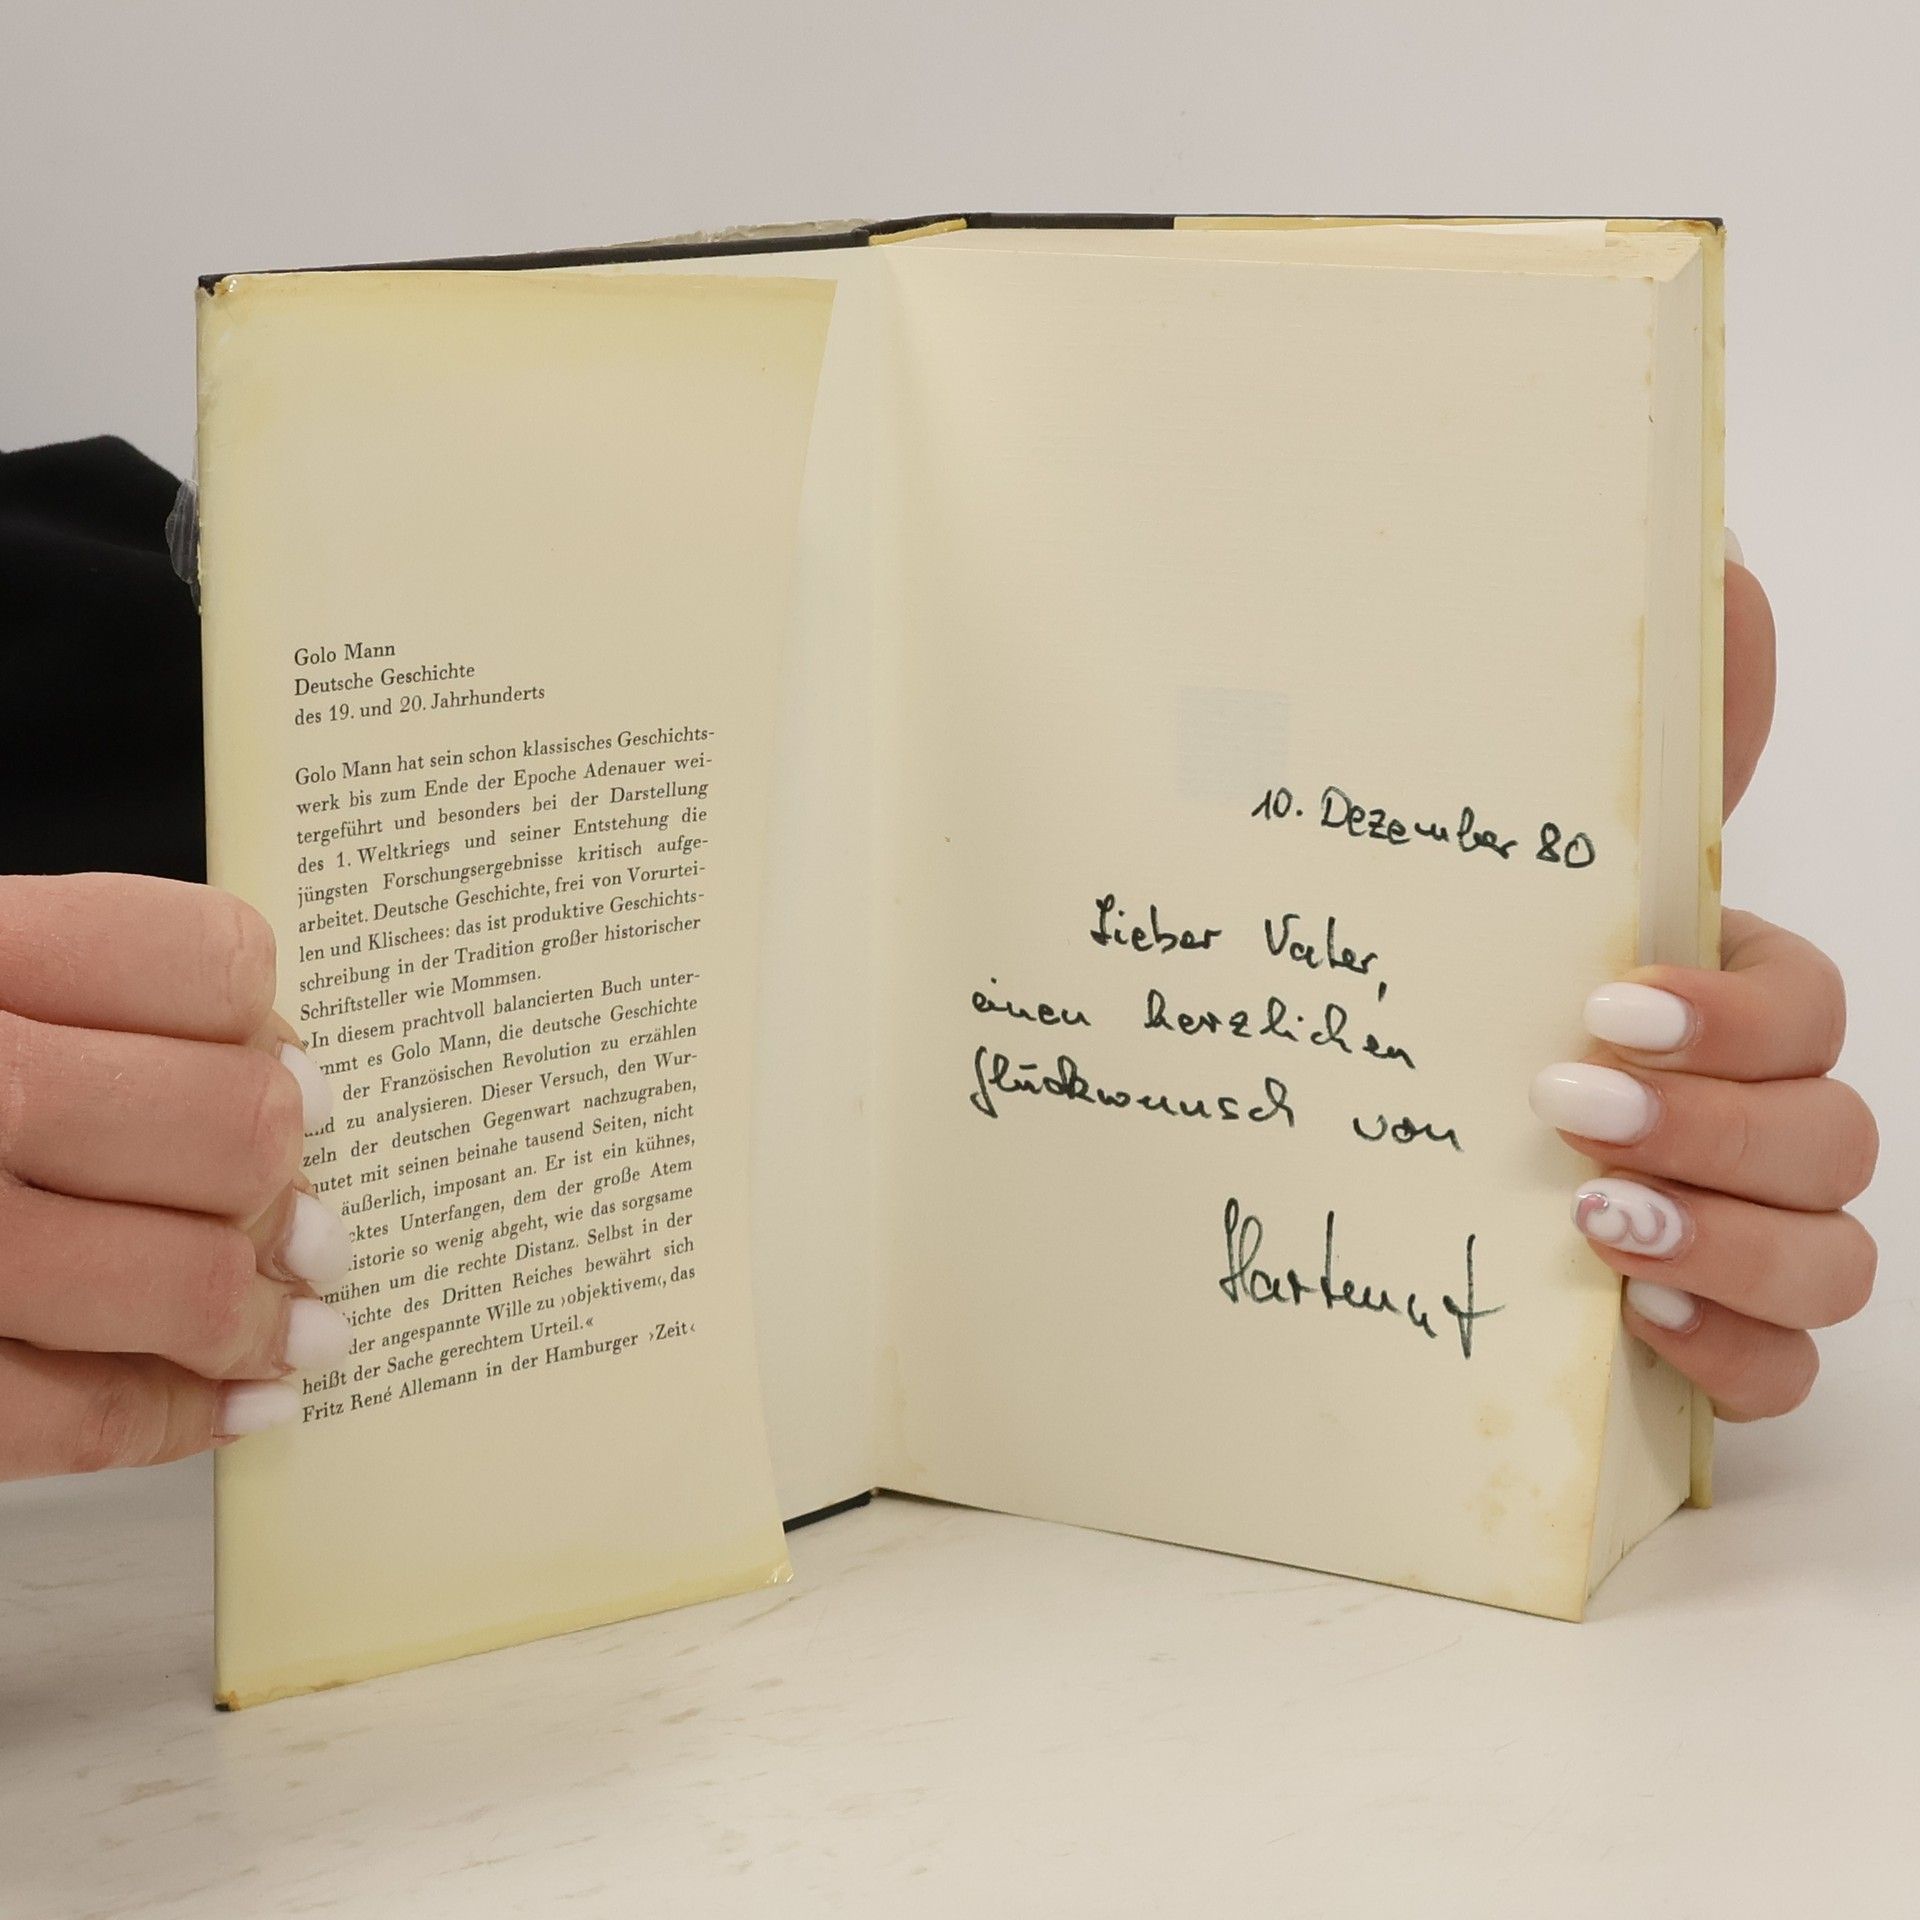 Golo Mann
Deutsche Geschichte
des 19. und 20. Jahrhunderts
Golo Mann hat sein schon klassisches Geschichts-
werk bis zum Ende der Epoche Adenauer wei-
tergeführt und besonders bei der Darstellung
des 1. Weltkriegs und seiner Entstehung die
jüngsten Forschungsergebnisse kritisch aufge-
arbeitet. Deutsche Geschichte, frei von Vorurtei-
len und Klischees: das ist produktive Geschichts-
schreibung in der Tradition großer historischer
Schriftsteller wie Mommsen.
»In diesem prachtvoll balancierten Buch unter-
mmt es Golo Mann, die deutsche Geschichte
der Französischen Revolution zu erzählen
nd zu analysieren. Dieser Versuch, den Wur-
zeln der deutschen Gegenwart nachzugraben,
mutet mit seinen beinahe tausend Seiten, nicht
äußerlich, imposant an. Er ist ein kühnes,
cktes Unterfangen, dem der große Atem
istorie so wenig abgeht, wie das sorgsame
mühen um die rechte Distanz. Selbst in der
hichte des Dritten Reiches bewährt sich
der angespannte Wille zu ›objektivem‹, das
heißt der Sache gerechtem Urteil.«
Fritz René Allemann in der Hamburger ›Zeit‹
10. Dezember 80
Lieber Vater,
einen herzlichen
Glückwunsch von
Hartmut